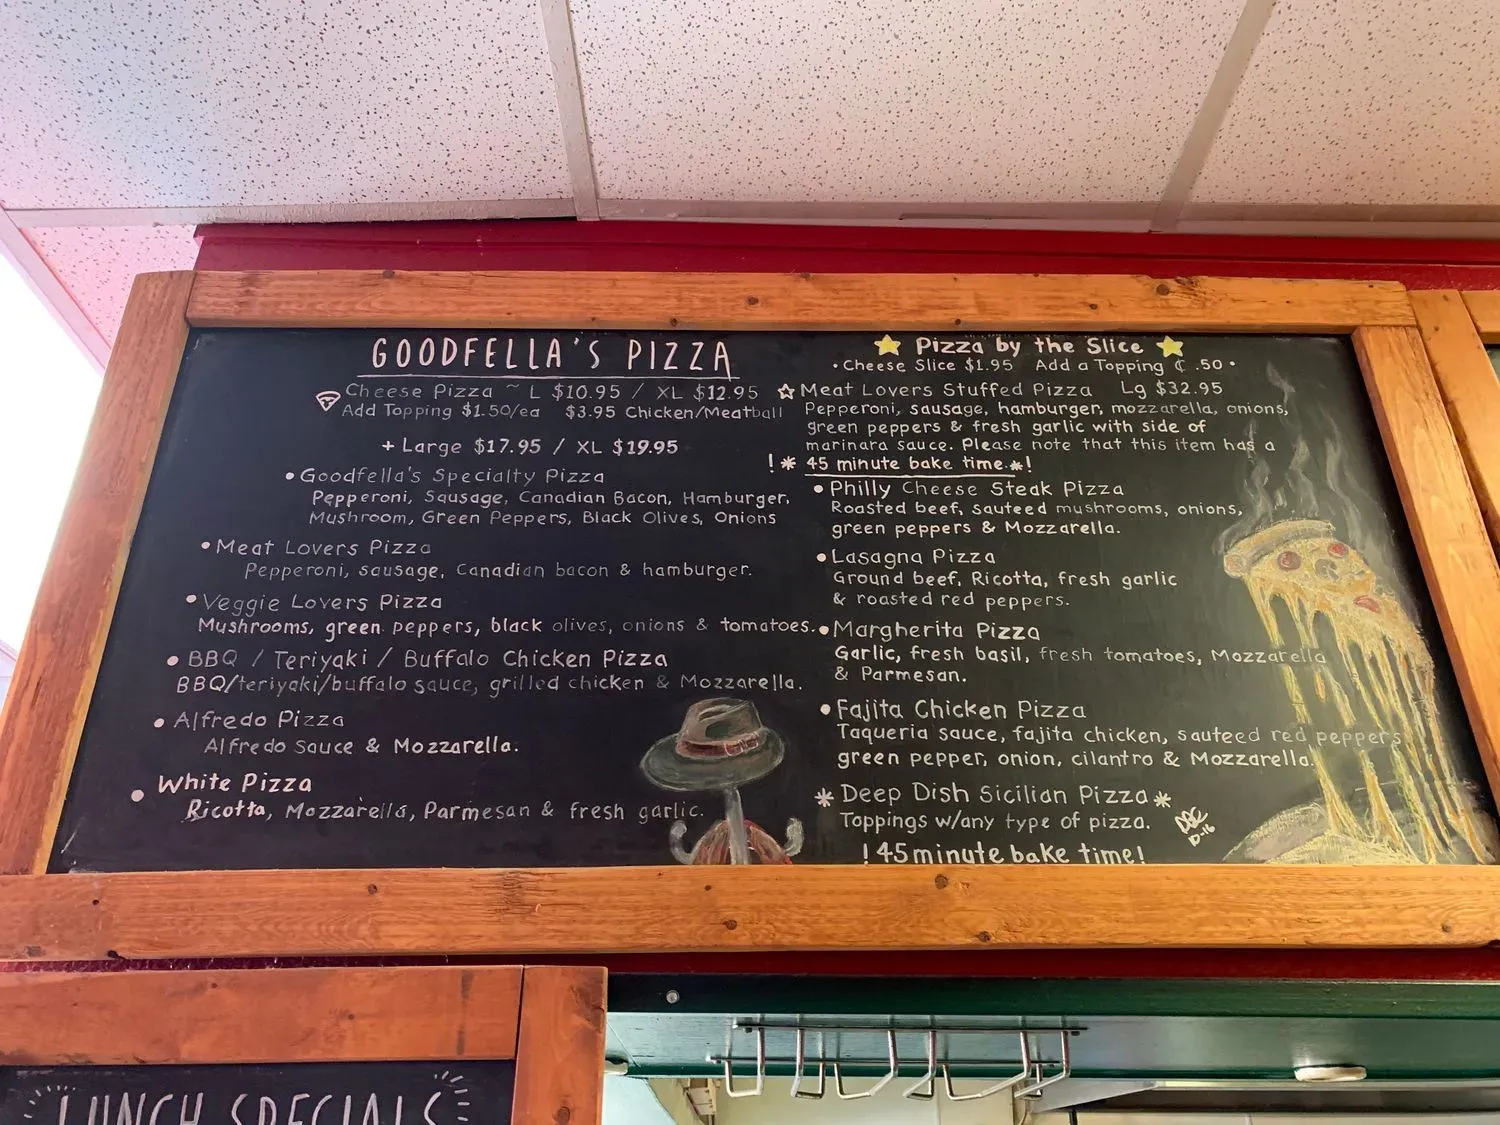 GOODFELLA'S PIZZA
Cheese Pizza ~ L $10.95 / XL $12.95
Add Topping $1.50/ea $3.95 Chicken/Meatball
+ Large $17.95 / XL $19.95
• Goodfella's Specialty Pizza
Pepperoni, Sausage, Canadian Bacon, Hamburger,
Mushroom, Green Peppers, Black Olives, Onions
• Meat Lovers Pizza
Pepperoni, sausage, Canadian bacon & hamburger.
• Veggie Lovers Pizza
Mushrooms, green peppers, black olives, onions & tomatoes.
• BBQ / Teriyaki / Buffalo Chicken Pizza
BBQ/teriyaki/buffalo sauce, grilled chicken & Mozzarella.
• Alfredo Pizza
Alfredo Sauce & Mozzarella.
• White Pizza
Ricotta, Mozzarella, Parmesan & fresh garlic.
Pizza by the Slice
• Cheese Slice $1.95 Add a Topping ¢ .50 •
☆ Meat Lovers Stuffed Pizza Lg $32.95
Pepperoni, sausage, hamburger, mozzarella, onions,
green peppers & fresh garlic with side of
marinara sauce. Please note that this item has a
! * 45 minute bake time. * !
• Philly Cheese Steak Pizza
Roasted beef, sauteed mushrooms, onions,
green peppers & Mozzarella.
• Lasagna Pizza
Ground beef, Ricotta, fresh garlic
& roasted red peppers.
• Margherita Pizza
Garlic, fresh basil, fresh tomatoes, Mozzarella
& Parmesan.
• Fajita Chicken Pizza
Taqueria sauce, fajita chicken, sauteed red peppers
green pepper, onion, cilantro & Mozzarella.
* Deep Dish Sicilian Pizza *
Toppings w/any type of pizza.
! 45 minute bake time!
LUNCH SPECIALS